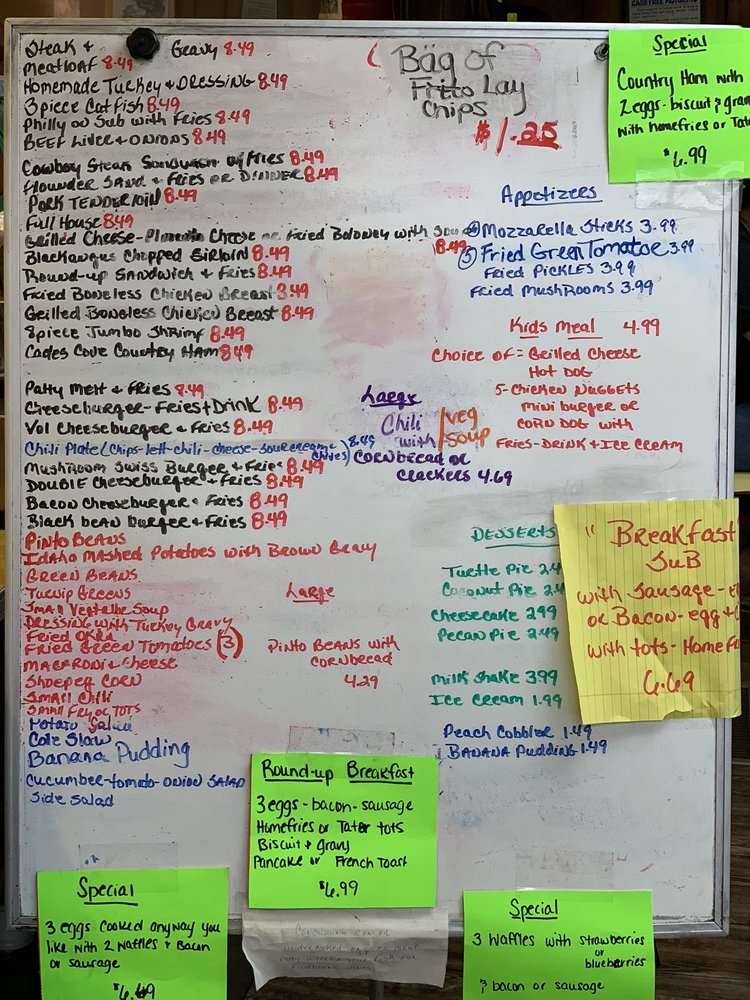 Steak & Gravy 8.49
Meatloaf 8.49
Homemade Turkey & Dressing 8.49
3 piece Catfish 8.49
Philly or Sub with Fries 8.49
Beef Liver & Onions 8.49
Cowboy Steak Sandwich w/ Fries 8.49
Flounder Sand & Fries or Dinner 8.49
Pork Tenderloin 8.49
Full House 8.49
Grilled Cheese-Pimento Cheese or Fried Boloney with 8.49
Blackangus Chopped Sirloin 8.49
Round-up Sandwich & Fries 8.49
Fried Boneless Chicken Breast 8.49
Grilled Boneless Chicken Breast 8.49
8 piece Jumbo Shrimp 8.49
Cades Cove Country Ham 8.49
Patty Melt & Fries 8.49
Cheeseburger-Fries + Drink 8.49
Vol Cheeseburger & Fries 8.49
Chili Plate (chips-lett-chili-cheese-sourcream & chives) 8.49
Mushroom Swiss Burger & Fries 8.49
Double Cheeseburger & Fries 8.49
Bacon Cheeseburger & Fries 8.49
Black bean Burger & Fries 8.49
Pinto Beans
Idaho Mashed Potatoes with Brown Gravy
Green Beans
Turnip Greens
Small Vegetable Soup
Dressing with Turkey Gravy
Fried Okra
Fried Green Tomatoes (3)
Macaroni & Cheese
Shoepeg Corn
Small Chili
Small Fry or Tots
Potato Salad
Cole Slaw
Banana Pudding
Cucumber-tomato-onion Salad
Side Salad
Bag of
Frito Lay
Chips
$1.25
Appetizers
6 Mozzarella Sticks 3.99
5 Fried Green Tomatoe 3.99
Fried Pickles 3.99
Fried Mushrooms 3.99
Kids Meal 4.99
Choice of = Grilled Cheese
Hot Dog
5-Chicken Nuggets
Mini burger or
Corn Dog with
Fries-Drink & Ice Cream
Large
Chili / veg
with / soup
Cornbread or
Crackers 4.69
Large
Pinto Beans with
Cornbread
4.29
Desserts
Turtle Pie 2.4
Coconut Pie 2.4
Cheesecake 2.99
Pecan Pie 2.49
Milk Shake 3.99
Ice Cream 1.99
Peach Cobbler 1.49
Banana Pudding 1.49
Special
Country Ham with
2 eggs - biscuit & grav
with homefries or Tat
$6.99
"Breakfast
Sub
with Sausage-e
or Bacon-egg &
with tots-Homef
6.69
Round-up Breakfast
3 eggs - bacon - sausage
Homefries or Tater tots
Biscuit & gravy
Pancake or French Toast
$6.99
Special
3 eggs Cooked anyway you
like with 2 Waffles & Bacon
or sausage
$6.49
Special
3 Waffles with strawberries
or blueberries
& bacon or sausage